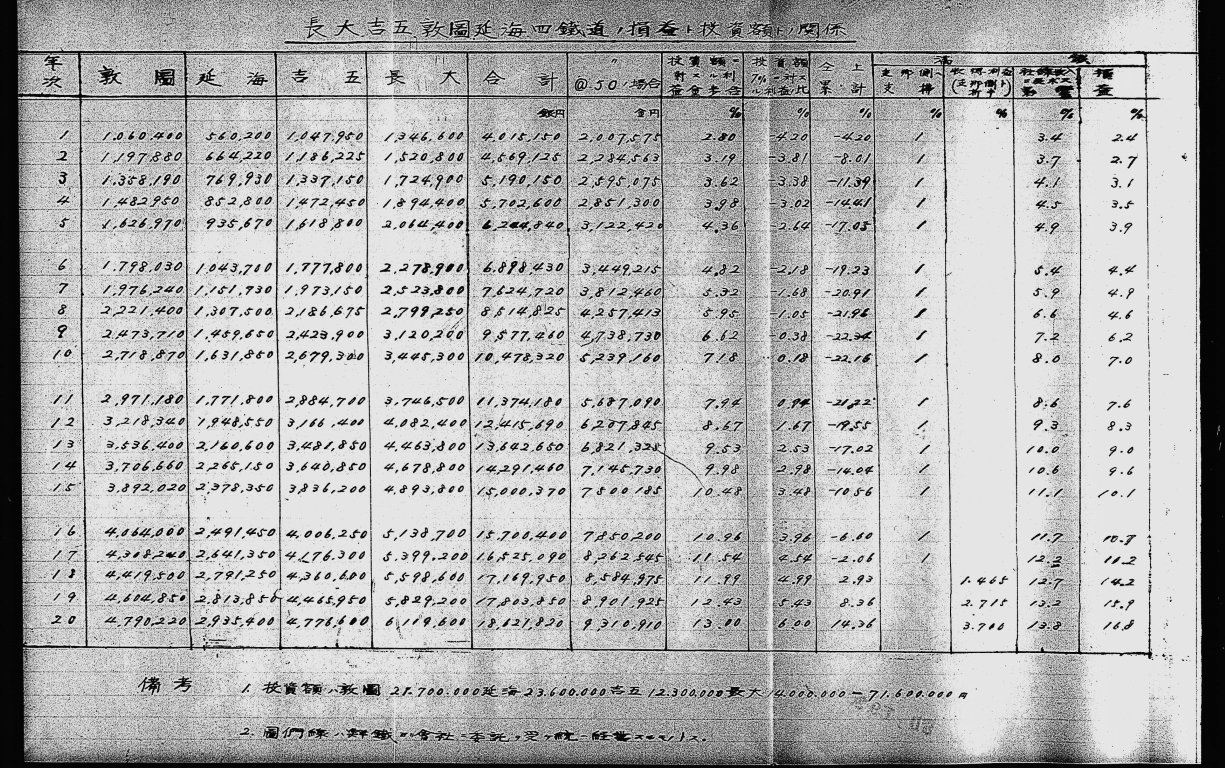 長大吉五敦圖延海四鐵道ノ損益ト投資額トノ関係
年次 敦圖 延海 吉五 長大 合計 〃@.50ノ場合 投資額ニ対スル利益金歩合 投資額7%ニ対スル利益ノ比 仝上累計 満 鉄
損益
銀円 金円 % % % % % % %
1 1,060,400 560,200 1,047,950 1,346,600 4,015,150 2,007,575 2.80 -4.20 -4.20 1 3.4 2.4
2 1,197,880 664,220 1,186,225 1,520,800 4,569,125 2,284,563 3.19 -3.81 -8.01 1 3.7 2.7
3 1,358,190 769,930 1,337,150 1,724,900 5,190,150 2,595,075 3.62 -3.38 -11.39 1 4.1 3.1
4 1,482,950 852,800 1,472,450 1,894,400 5,702,600 2,851,300 3.98 -3.02 -14.41 1 4.5 3.5
5 1,626,970 935,670 1,618,800 2,064,400 6,244,840 3,122,420 4.36 -2.64 -17.05 1 4.9 3.9
6 1,798,030 1,043,700 1,777,800 2,278,900 6,898,430 3,449,215 4.82 -2.18 -19.23 1 5.4 4.4
7 1,976,240 1,151,730 1,973,150 2,523,800 7,624,720 3,812,460 5.32 -1.68 -20.91 1 5.9 4.9
8 2,221,400 1,307,500 2,186,675 2,799,250 8,514,825 4,257,413 5.95 -1.05 -21.96 1 6.6 4.6
9 2,473,710 1,459,650 2,423,900 3,120,200 9,577,460 4,738,730 6.62 0.38 -22.34 1 7.2 6.2
10 2,718,870 1,631,850 2,679,300 3,445,300 10,478,320 5,239,160 7.18 0.18 -22.16 1 8.0 7.0
11 2,971,180 1,771,800 2,884,700 3,746,500 11,374,180 5,687,090 7.94 0.94 -21.22 1 8.6 7.6
12 3,218,340 1,948,550 3,166,400 4,082,400 12,415,690 6,207,845 8.67 1.67 -19.55 1 9.3 8.3
13 3,536,400 2,160,600 3,481,850 4,463,800 13,642,650 6,821,325 9.53 2.53 -17.02 1 10.0 9.0
14 3,706,660 2,265,150 3,640,850 4,678,800 14,291,460 7,145,730 9.98 2.98 -14.04 1 10.6 9.6
15 3,892,020 2,378,350 3,836,200 4,893,800 15,000,370 7,500,185 10.48 3.48 -10.56 1 11.1 10.1
16 4,064,000 2,491,450 4,006,250 5,138,700 15,700,400 7,850,200 10.96 3.96 -6.60 1 11.7 10.7
17 4,308,240 2,641,350 4,176,300 5,399,200 16,525,090 8,262,545 11.54 4.54 -2.06 1 12.2 11.2
18 4,419,500 2,791,250 4,360,600 5,598,600 17,169,950 8,584,975 11.99 4.99 2.93 1.465 12.7 14.2
19 4,604,850 2,813,850 4,465,950 5,829,200 17,803,850 8,901,925 12.43 5.43 8.36 2.715 13.2 15.9
20 4,790,220 2,935,400 4,776,600 6,119,600 18,621,820 9,310,910 13.00 6.00 14.36 3.700 13.8 16.8
備考 1. 投資額ハ敦圖 21.700.000 延海 23.600.000 吉五 12.300.000 長大 14.000.000 － 71.600.000円
2. 圖們線ハ鮮鐵ヨリ會社ニ委託ヲ受ケ統一経営スルモノトス。